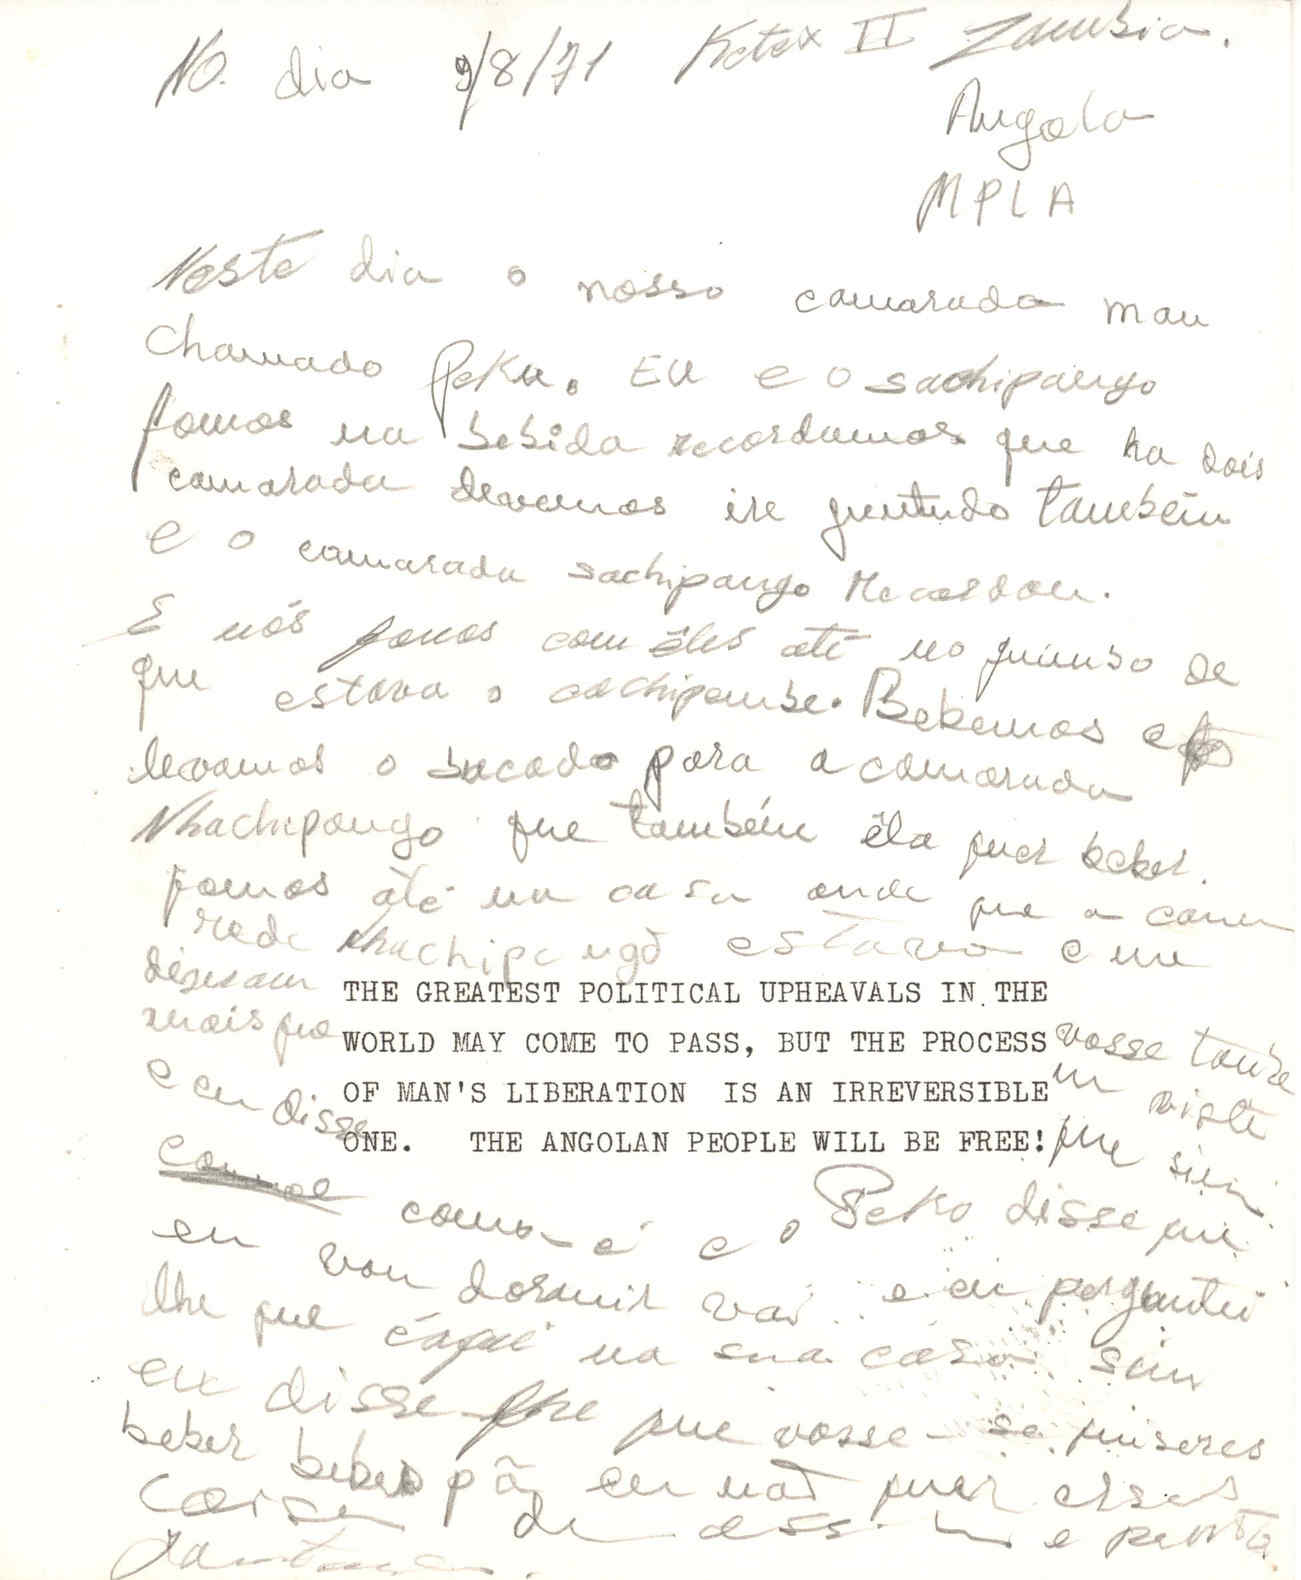 No. dia 9/8/71 Ketex II Zambia.
Angola
MPLA
Neste dia o nosso camarada mau
chamado Peku. Eu e o sachipango
fomos na bebida recordamos que ha dois
camarada devemos ire juntudo também
e o camarada sachipango Recordou.
E nós fomos com êles até no quimbo de
que estava o cachipembe. Bebemos e
levamos o bucado para a camarada
Nhachipango que também êla quer beber.
fomos até na casa onde que a cama
rada Nhachipango estava e me
diseram
mais que
e eu disse
THE GREATEST POLITICAL UPHEAVALS IN THE
WORLD MAY COME TO PASS, BUT THE PROCESS
OF MAN'S LIBERATION IS AN IRREVERSIBLE
ONE. THE ANGOLAN PEOPLE WILL BE FREE!
vosse tambe
m
que sim
como é e o Peko disse que
eu vou dormir vai e eu perguntei
lhe que é aqui na sua casa sim
eu disse lhe que vosse se quiseres
beber bebes pã eu não quer essas
coisa de assim e